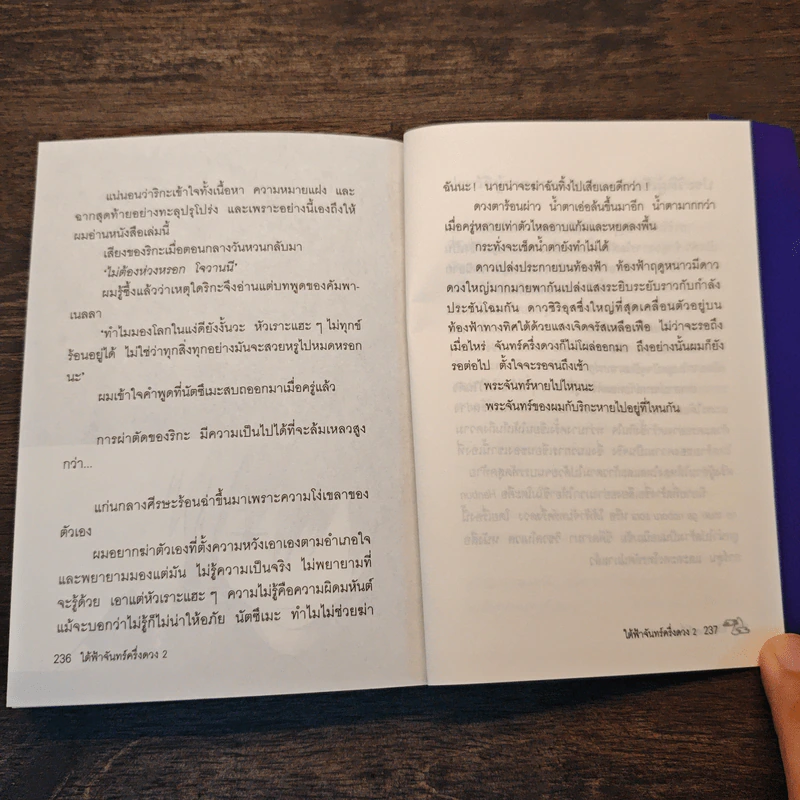 แน่นอนว่าริกะเข้าใจทั้งเนื้อหา ความหมายแฝง และ
ฉากสุดท้ายอย่างทะลุปรุโปร่ง และเพราะอย่างนี้เองถึงให้
ผมอ่านหนังสือเล่มนี้
เสียงของริกะเมื่อตอนกลางวันหวนกลับมา
'ไม่ต้องห่วงหรอก โจวานนี'
ผมรู้ซึ้งแล้วว่าเหตุใดริกะจึงอ่านแต่บทพูดของคัมพา-
เนลลา
'ทำไมมองโลกในแง่ดียังงั้นวะ หัวเราะแฮะ ๆ ไม่ทุกข์
ร้อนอยู่ได้ ไม่ใช่ว่าทุกสิ่งทุกอย่างมันจะสวยหรูไปหมดหรอก
นะ'
ผมเข้าใจคำพูดที่นัตซึเมะสบถออกมาเมื่อครู่แล้ว
การผ่าตัดของริกะ มีความเป็นไปได้ที่จะล้มเหลวสูง
กว่า...
แก่นกลางศีรษะร้อนฉ่าขึ้นมาเพราะความโง่เขลาของ
ตัวเอง
ผมอยากฆ่าตัวเองที่ตั้งความหวังเอาเองตามอำเภอใจ
และพยายามมองแต่มัน ไม่รู้ความเป็นจริง ไม่พยายามที่
จะรู้ด้วย เอาแต่หัวเราะแฮะ ๆ ความไม่รู้คือความผิดมหันต์
แม้จะบอกว่าไม่รู้ก็ไม่น่าให้อภัย นัตซึเมะ ทำไมไม่ช่วยฆ่า
236 ใต้ฟ้าจันทร์ครึ่งดวง 2
ฉันนะ! นายน่าจะฆ่าฉันทิ้งไปเสียเลยดีกว่า!
ดวงตาร้อนผ่าว น้ำตาเอ่อล้นขึ้นมาอีก น้ำตามากกว่า
เมื่อครู่หลายเท่าตัวไหลอาบแก้มและหยดลงพื้น
กระทั่งจะเช็ดน้ำตายังทำไม่ได้
ดาวเปล่งประกายบนท้องฟ้า ท้องฟ้าฤดูหนาวมีดาว
ดวงใหญ่มากมายพากันเปล่งแสงระยิบระยับราวกับกำลัง
ประชันโฉมกัน ดาวซิริอุสซึ่งใหญ่ที่สุดเคลื่อนตัวอยู่บน
ท้องฟ้าทางทิศใต้ด้วยแสงเจิดจรัสเหลือเฟือ ไม่ว่าจะรอถึง
เมื่อไหร่ จันทร์ครึ่งดวงก็ไม่โผล่ออกมา ถึงอย่างนั้นผมก็ยัง
รอต่อไป ตั้งใจจะรอจนถึงเช้า
พระจันทร์หายไปไหนนะ
พระจันทร์ของผมกับริกะหายไปอยู่ที่ไหนกัน
ใต้ฟ้าจันทร์ครึ่งดวง 2 237